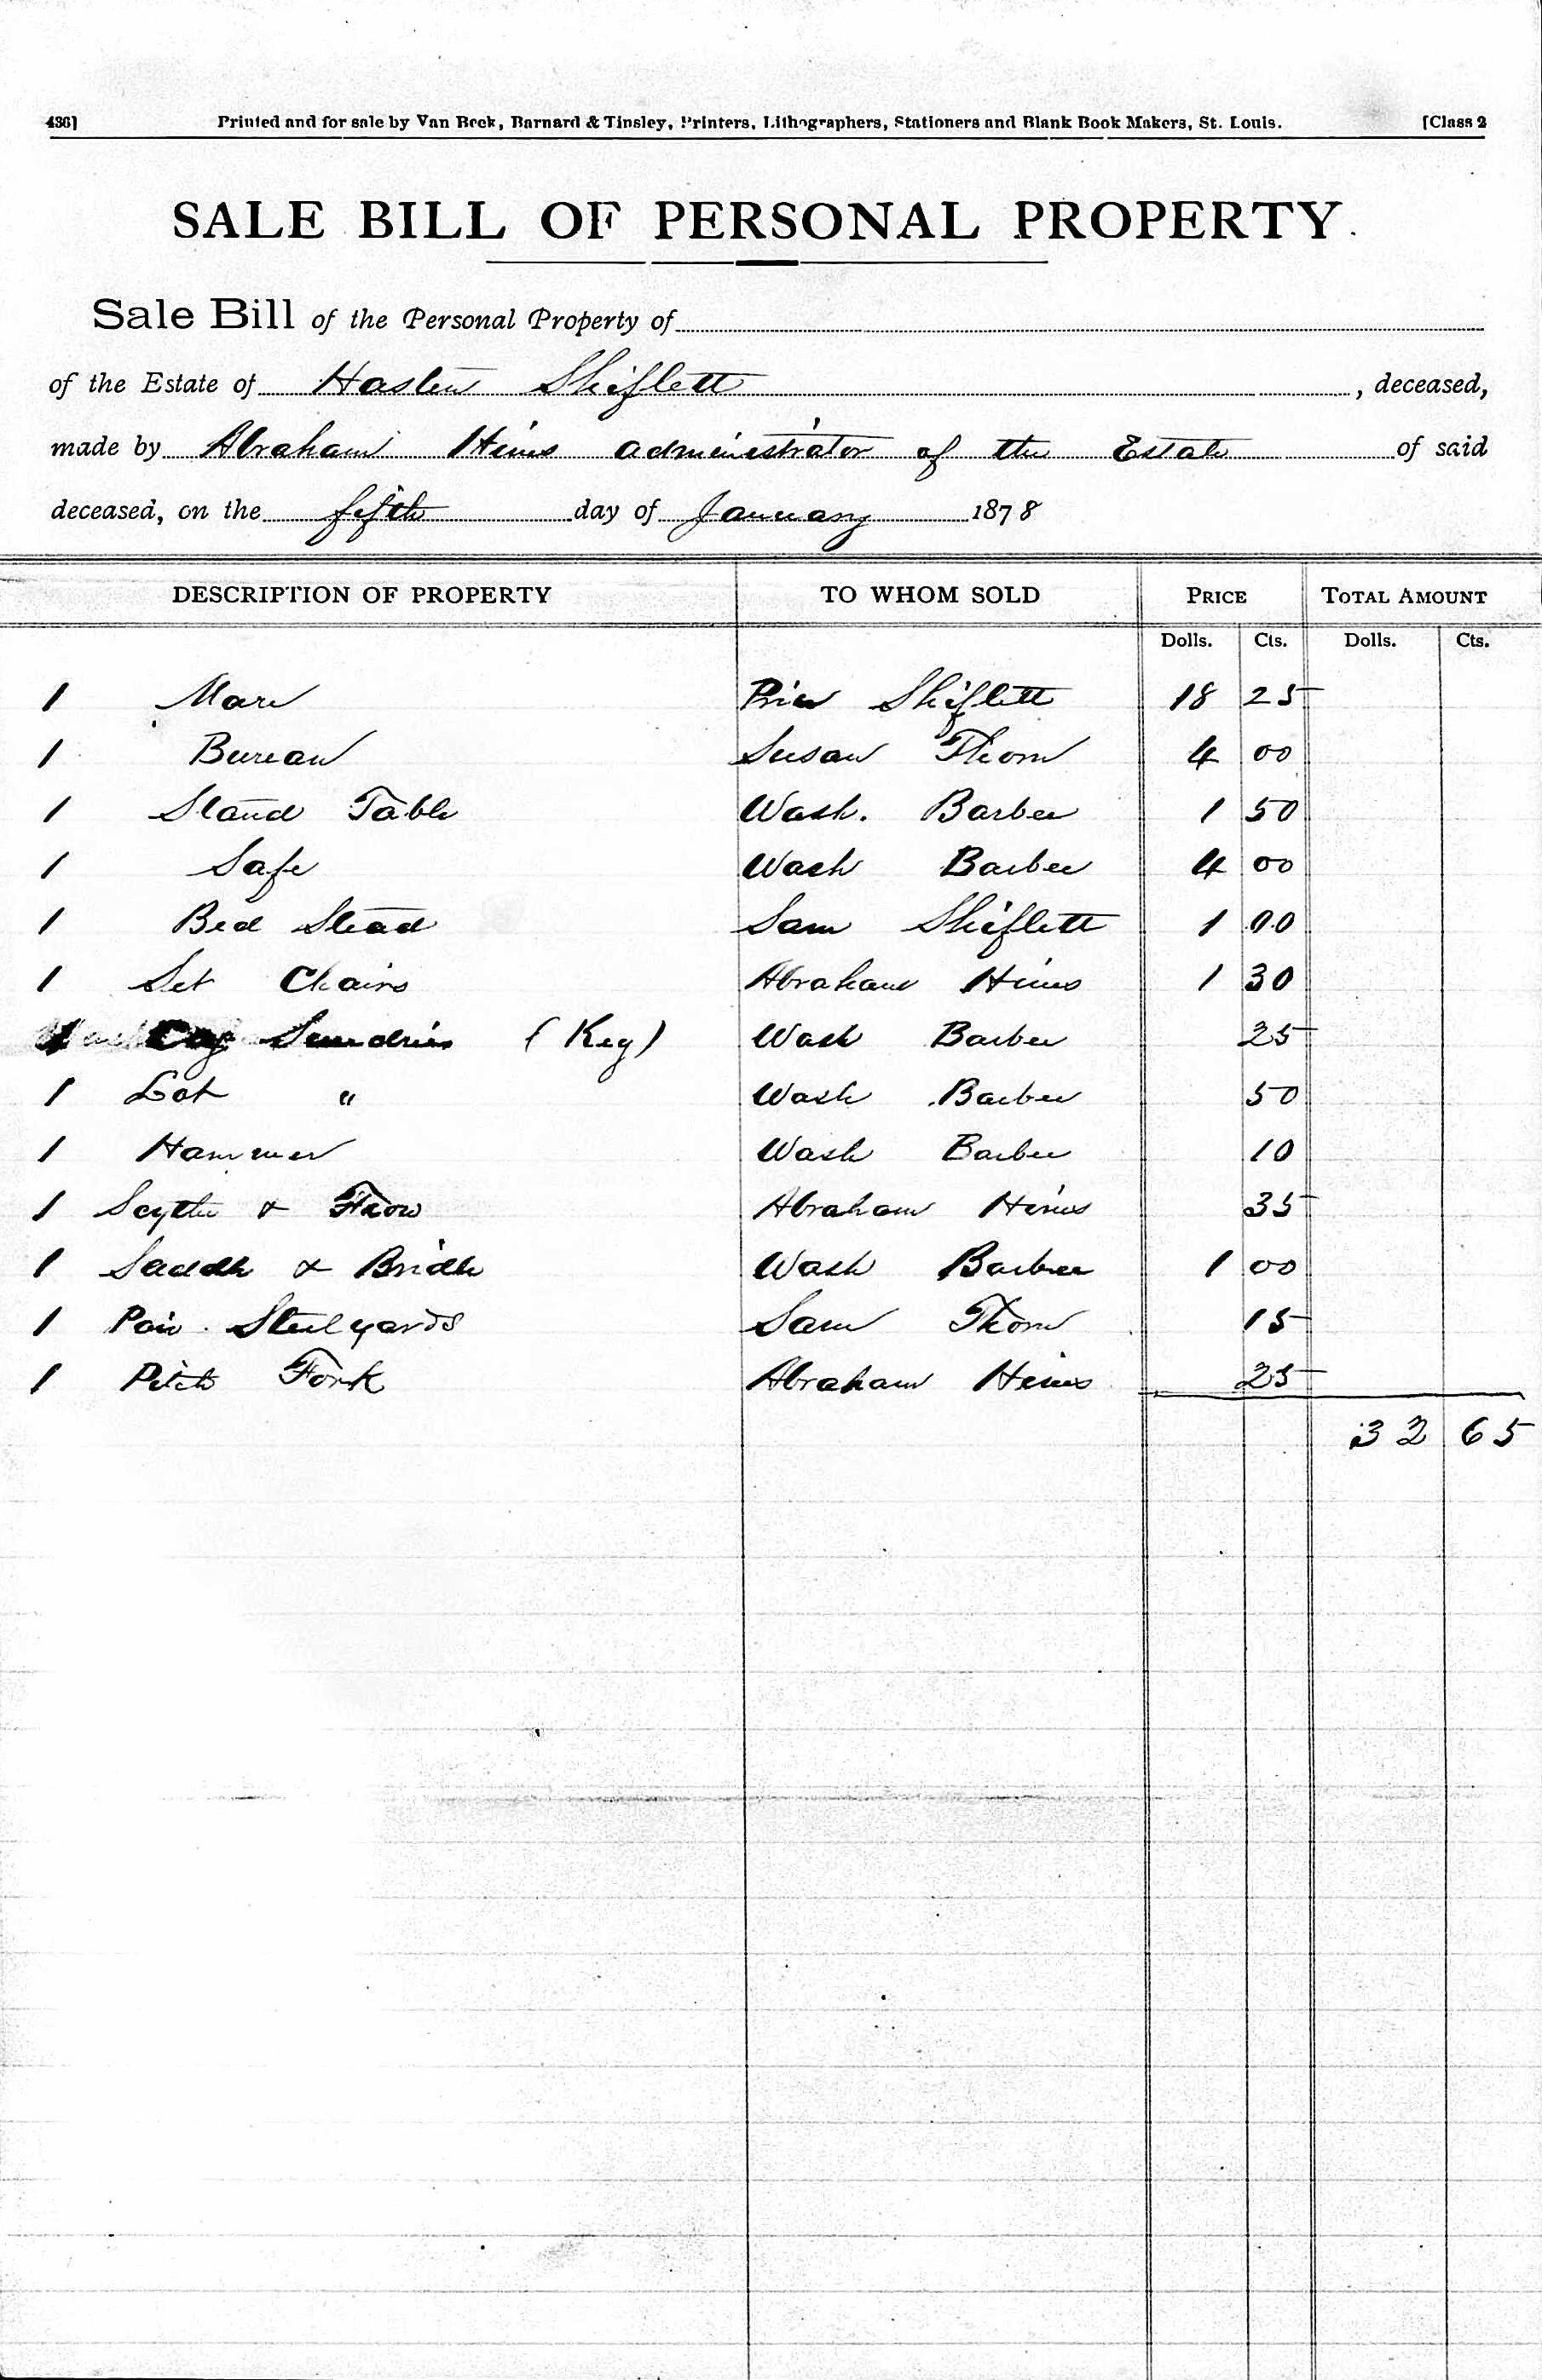 436] Printed and for sale by Van Beek, Barnard & Tinsley, Printers, Lithographers, Stationers and Blank Book Makers, St. Louis. [Class 2
SALE BILL OF PERSONAL PROPERTY.
Sale Bill of the Personal Property of
of the Estate of Hasten Shiflett, deceased,
made by Abraham Hines administrator of the Estate of said
deceased, on the fifth day of January 1878
DESCRIPTION OF PROPERTY TO WHOM SOLD PRICE TOTAL AMOUNT
Dolls. Cts. Dolls. Cts.
1 Mare Shiflett 18 25
1 Bureau Susan Thorn 4 00
1 Stand Table Wash. Barbee 1 50
1 Safe Wash Barbee 4 00
1 Bed Stead Sam Shiflett 1 00
1 Set Chairs Abraham Hines 1 30
Sundries (Keg) Wash Barbee 25
1 Lot " Wash Barbee 50
1 Hammer Wash Barbee 10
1 Scythe & Frow Abraham Hines 35
1 Saddle & Bridle Wash Barbee 1 00
1 Pair Steelyards Sam Thorn 15
1 Pitch Fork Abraham Hines 25
32 65